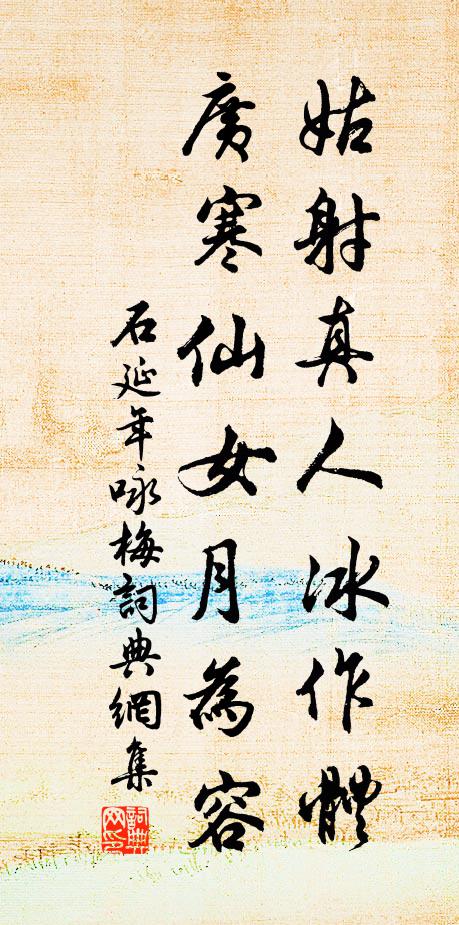 姑射真人冰作體
廣寒仙女月為容
石延年咏梅詞典網集
詞典網印